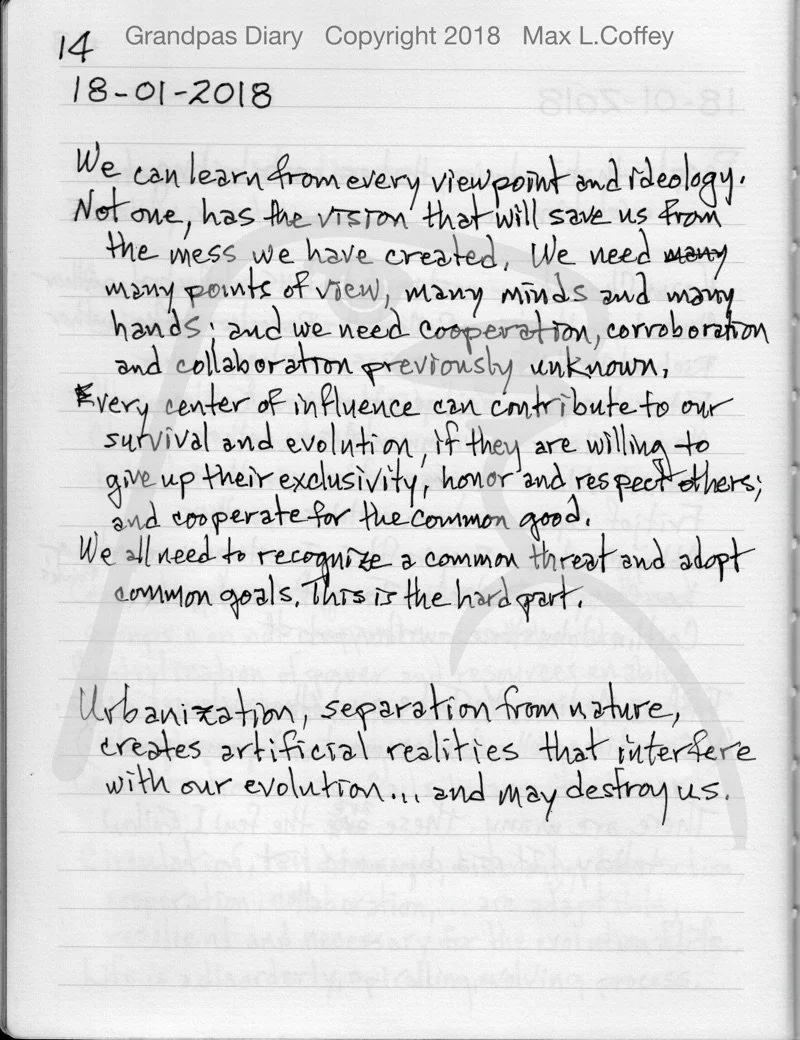 Grandpas Diary Copyright 2018 Max L.Coffey
14
18-01-2018
We can learn from every viewpoint and ideology.
Not one, has the vision that will save us from
the mess we have created. We need many
many points of view, many minds and many
hands; and we need cooperation, corroboration
and collaboration previously unknown.
Every center of influence can contribute to our
survival and evolution, if they are willing to
give up their exclusivity, honor and respect others;
and cooperate for the common good.
We all need to recognize a common threat and adopt
common goals. This is the hard part.
Urbanization, separation from nature,
creates artificial realities that interfere
with our evolution... and may destroy us.